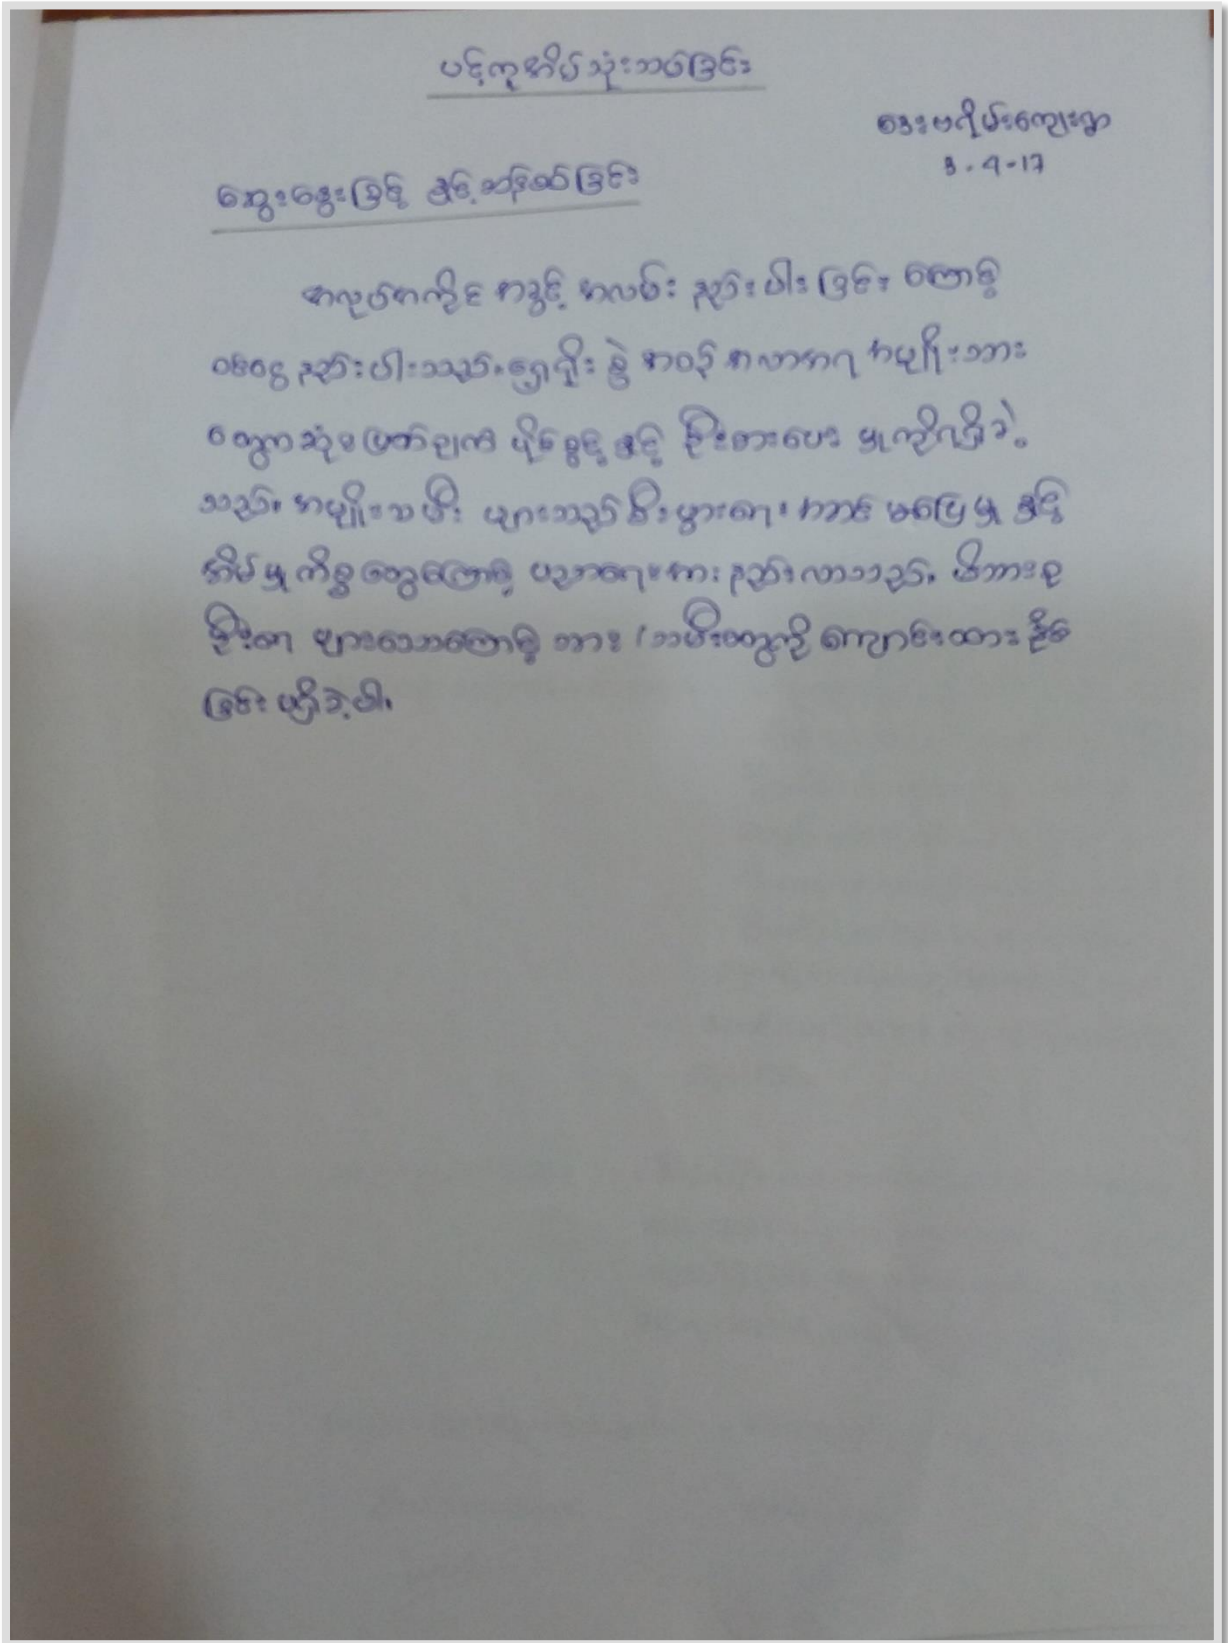 ပင့်ကူအိမ်သုံးသပ်ခြင်း
ဒေးဗရိမ်းကျေးရွာ
3.4.17
ဆွေးနွေးခြင်း နှင့်ဆန်းစစ်ခြင်း
အလုပ်အကိုင် အခွင့် အလမ်း နည်းပါး ခြင်း ကြောင့်
ဝင်ငွေ နည်းပါးသည်။ ရှေးရိုး စွဲ အစဉ် အလာအရ အမျိုးသား
တွေက ဆုံးဖြတ်ချက် ပိုင်ခွင့် နှင့် ဦးစားပေး မှုကိုရရှိခဲ့
သည်။ အမျိုးသမီး များသည် စီးပွားရေး အဆင် မပြေမှု နှင့်
အိမ်မှု ကိစ္စ တွေကြောင့် ပညာရေးအား နည်းလာသည်။ မိသားစု
ဦးရေ များသောကြောင့် သား/သမီးတွေကို ကျောင်းထား နိုင်
ခြင်း မရှိခဲ့ပါ။